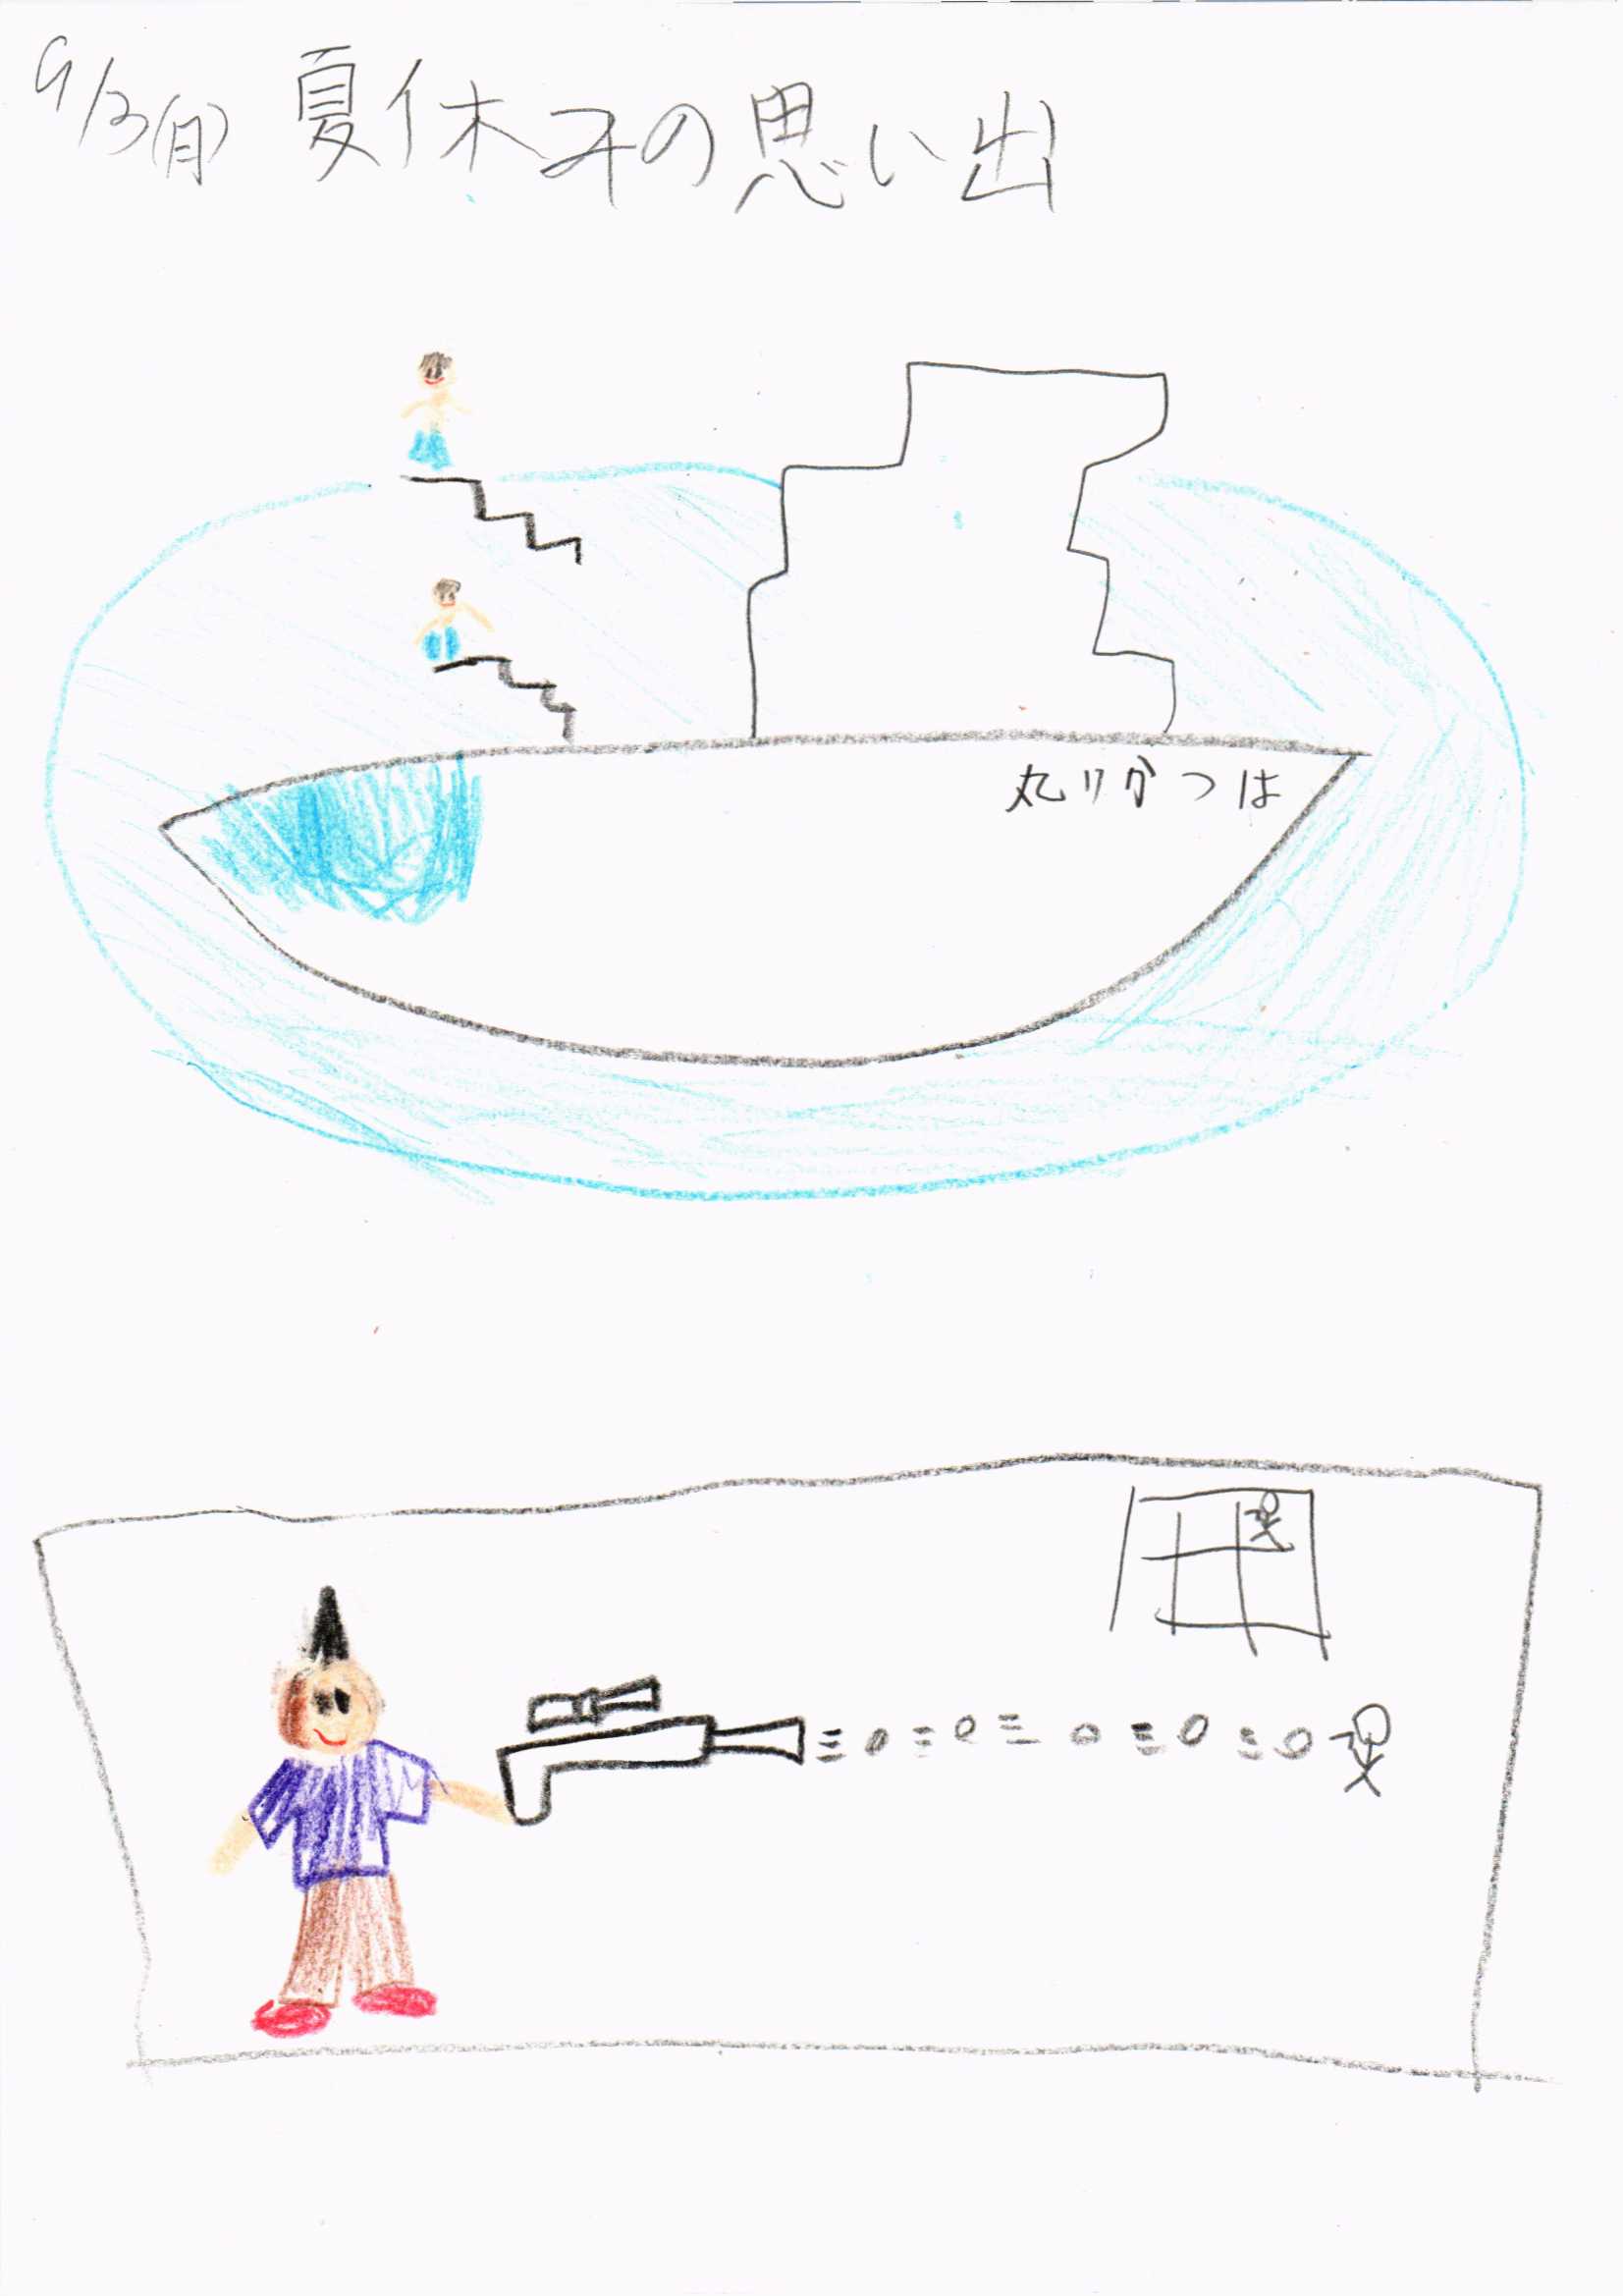 9/3(月) 夏休みの思い出
丸りかつは